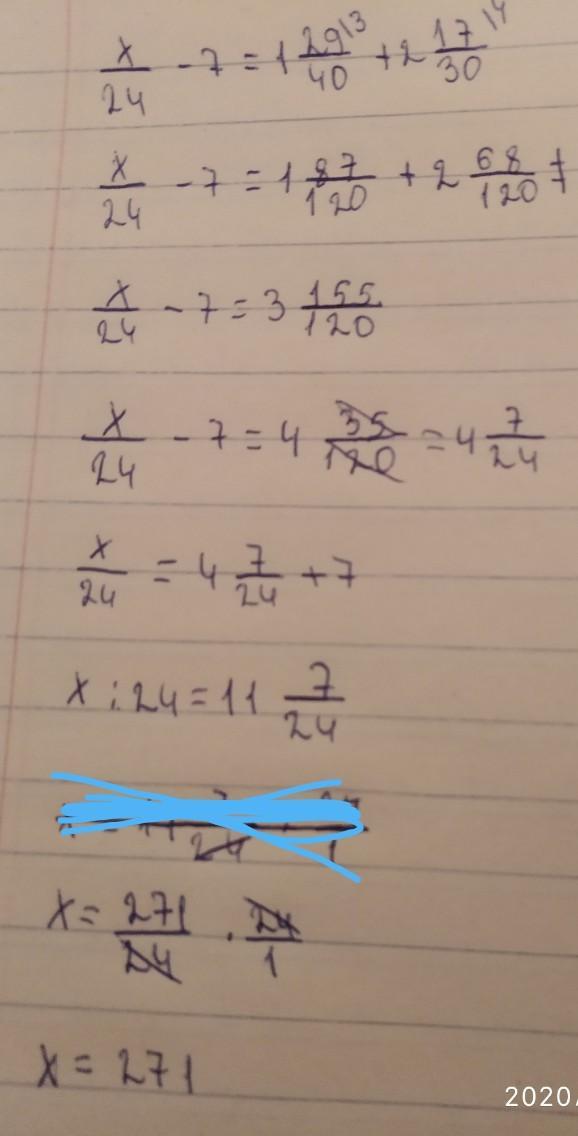 x/24 - 7 = 1 29/40 |3 + 2 17/30 |4
x/24 - 7 = 1 87/120 + 2 68/120 =
x/24 - 7 = 3 155/120
x/24 - 7 = 4 35/120 = 4 7/24
x/24 = 4 7/24 + 7
x : 24 = 11 7/24
x = 271/24 · 24/1
x = 271
2020/